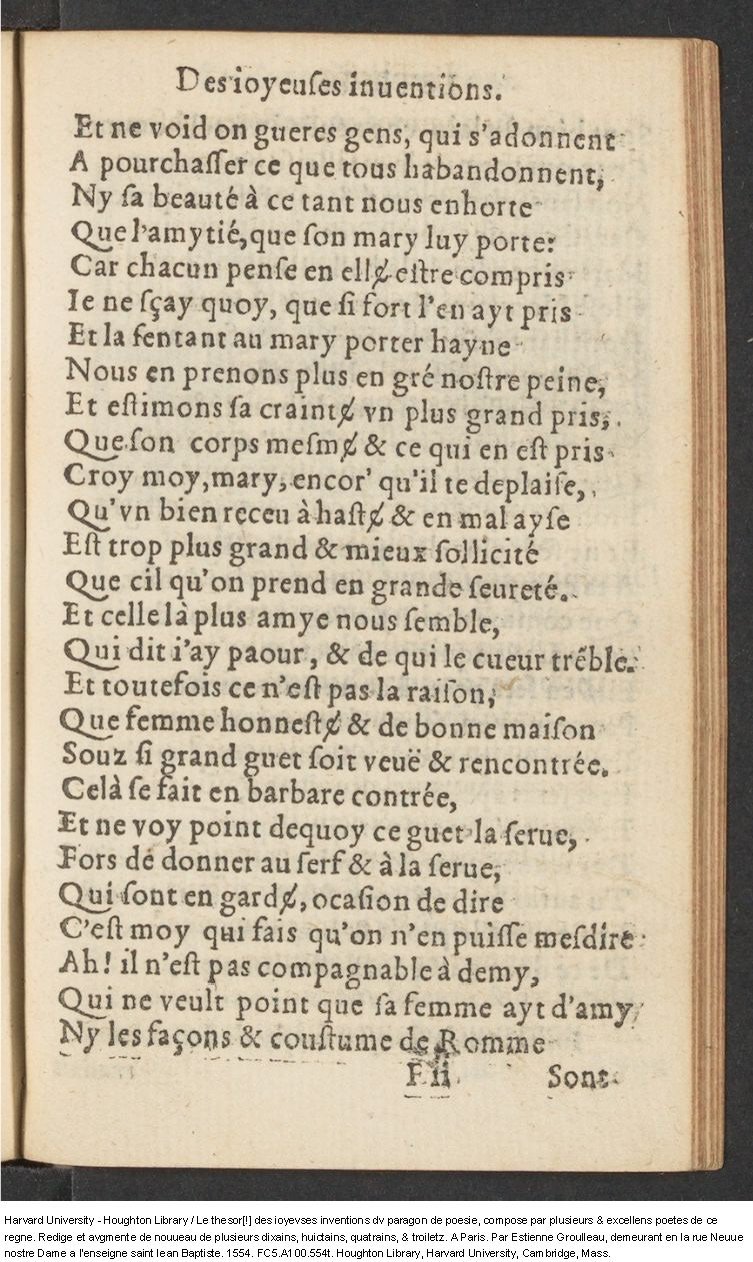 Des ioyeuſes inuentions.
Et ne void on gueres gens, qui s'adonnent
A pourchaſſer ce que tous habandonnent,
Ny ſa beauté à ce tant nous enhorte
Que l'amytié, que ſon mary luy porte:
Car chacun penſe en ellɇ eſtre compris
Ie ne ſçay quoy, que ſi fort l'en ayt pris
Et la ſentant au mary porter hayne
Nous en prenons plus en gré noſtre peine,
Et eſtimons ſa craintɇ vn plus grand pris,
Que ſon corps meſmɇ & ce qui en eſt pris
Croy moy, mary, encor' qu'il te deplaiſe,
Qu'vn bien receu à haſtɇ & en mal ayſe
Eſt trop plus grand & mieux ſollicité
Que cil qu'on prend en grande ſeureté.
Et celle là plus amye nous ſemble,
Qui dit i'ay paour, & de qui le cueur trẽble.
Et toutefois ce n'eſt pas la raiſon,
Que femme honneſtɇ & de bonne maiſon
Souz ſi grand guet ſoit veuë & rencontrée.
Celà ſe fait en barbare contrée,
Et ne voy point dequoy ce guet la ſerue,
Fors de donner au ſerf & à la ſerue,
Qui ſont en gardɇ, ocaſion de dire
C'eſt moy qui fais qu'on n'en puiſſe meſdire
Ah! il n'eſt pas compagnable à demy,
Qui ne veult point que ſa femme ayt d'amy
Ny les façons & couſtume de Romme
F ii Sont
Harvard University - Houghton Library / Le thesor[!] des ioyevses inventions dv paragon de poesie, compose par plusieurs & excellens poetes de ce
regne. Redige et avgmente de nouueau de plusieurs dixains, huictains, quatrains, & troiletz. A Paris. Par Estienne Groulleau, demeurant en la rue Neuue
nostre Dame a l'enseigne saint Iean Baptiste. 1554. FC5.A100.554t. Houghton Library, Harvard University, Cambridge, Mass.